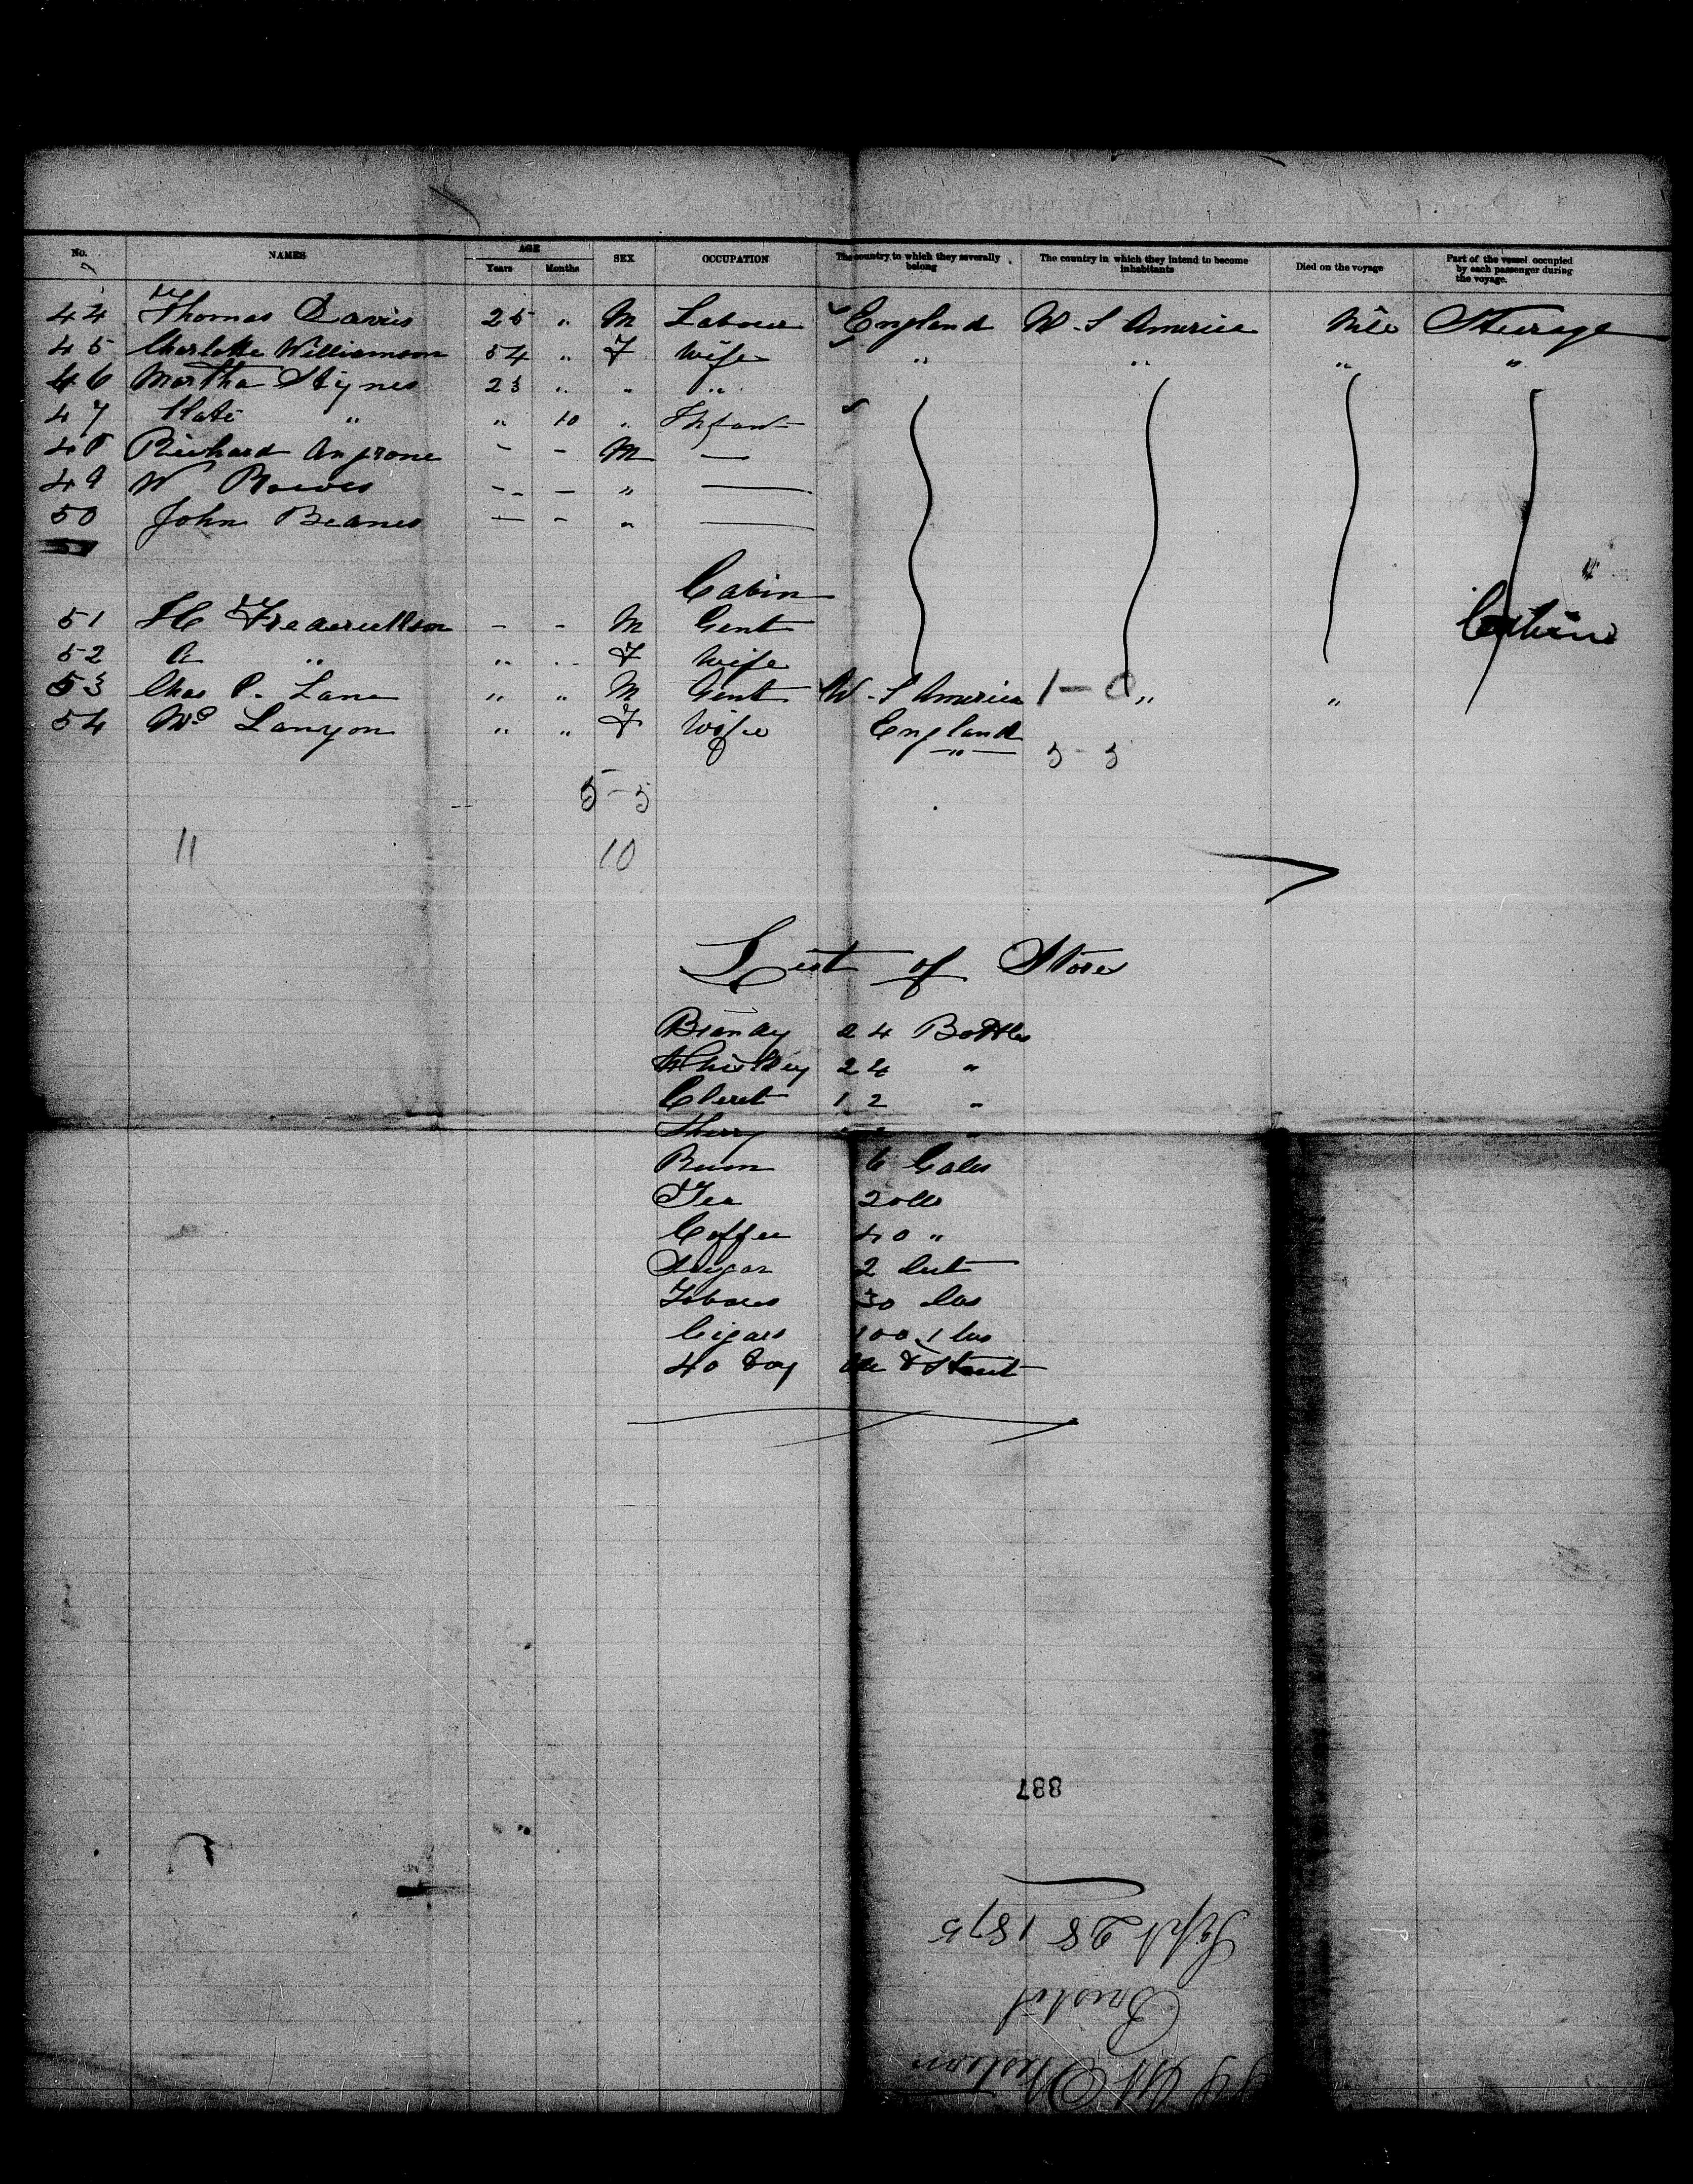 No. NAMES AGE Years Months SEX OCCUPATION The country to which they severally belong The country in which they intend to become inhabitants Died on the voyage Part of the vessel occupied by each passenger during the voyage.
44 Thomas Davies 25 " M Labourer England W. S America Nil Steerage
45 Charlotte Williamson 54 " F Wife " " " "
46 Martha Stynes 23 " " "
47 Kate " " 10 " Infant
48 Richard - - M —
49 W Reeves - - " —
50 John Beanes — - " —
Cabin "
51 Frederickson - - M Gent Cabin
52 A " " " F Wife
53 Chas P. Lane " " M Gent W. S America 1 - 0 " "
54 Mrs Lanyon " " F Wife England
" 5 - 5
5 - 5
11 10
List of Stores
Brandy 24 Bottles
Whiskey 24 "
Claret 12 "
Sherry " " "
Rum 6 Gals
Tea 20 lbs
Coffee 40 "
Sugar 2 Cwt
Tobacco 30 lbs
Cigars 100 1 lbs
40 Doz Ale & Stout
887
Sept 28 1875
Bristol
SS Gt Western